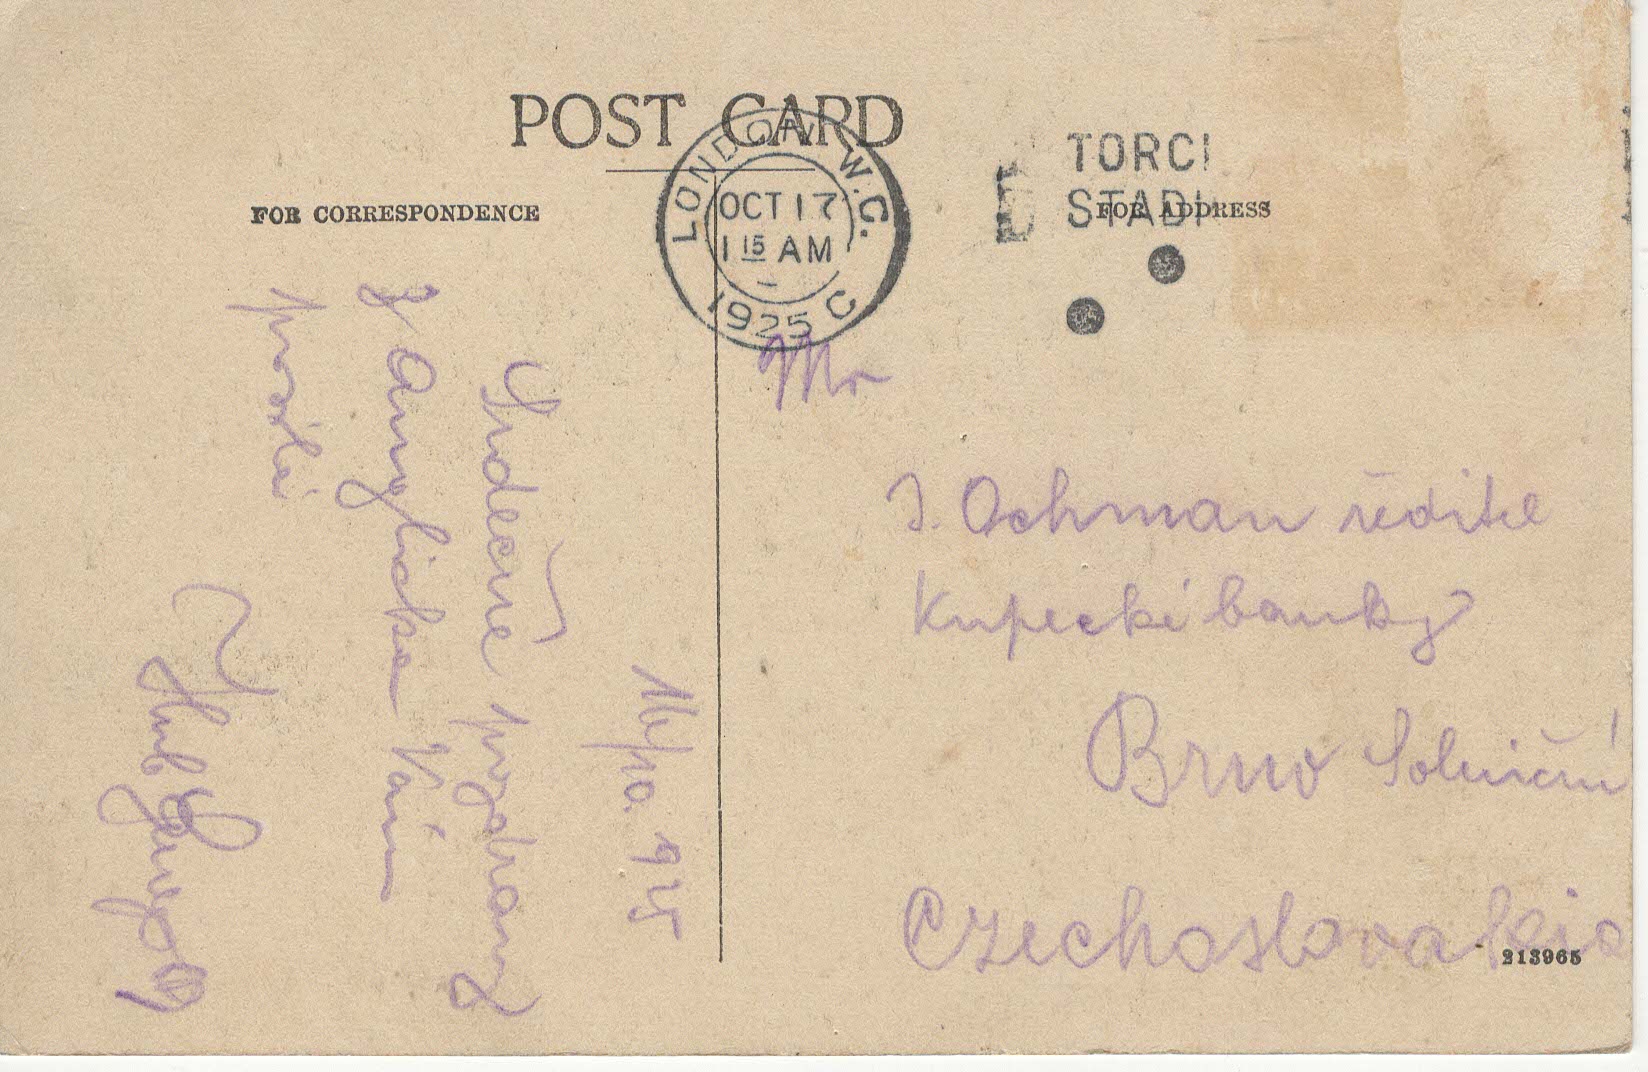 POST CARD
LONDON W.C.
OCT 17
1 15 AM
1925 C
TORCI
STADI
FOR CORRESPONDENCE
FOR ADDRESS
16/10. 925
Srdečné pozdravy
z Anglicka Vám
posílá
Mr
J. Ochman ředitel
Kupecké banky
Brno Solniční
Czechoslovakia
213965